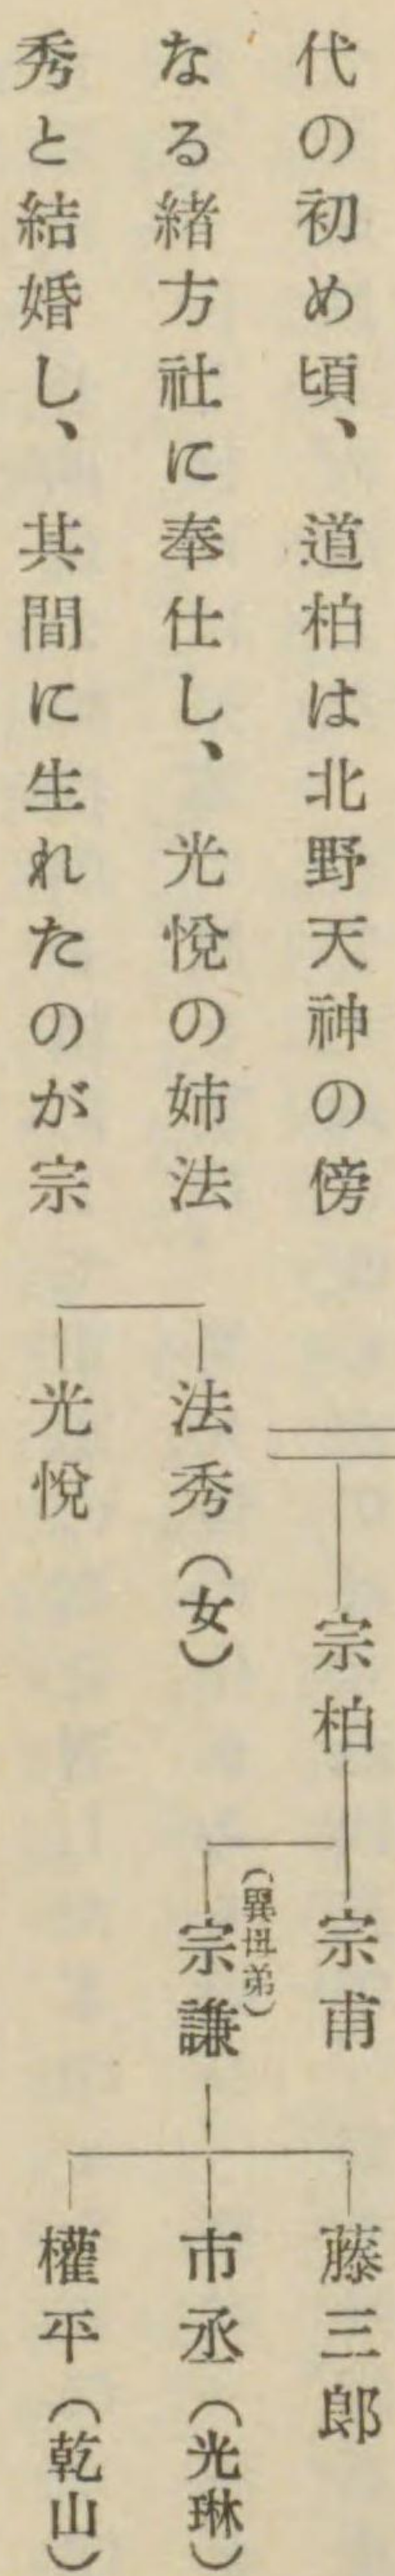 代の初め頃、道柏は北野天神の傍
なる緒方社に奉仕し、光悅の姉法
秀と結婚し、其間に生れたのが宗
法秀（女）
光悅
宗柏
宗甫
（異母弟）
宗謙
藤三郎
市丞（光琳）
權平（乾山）